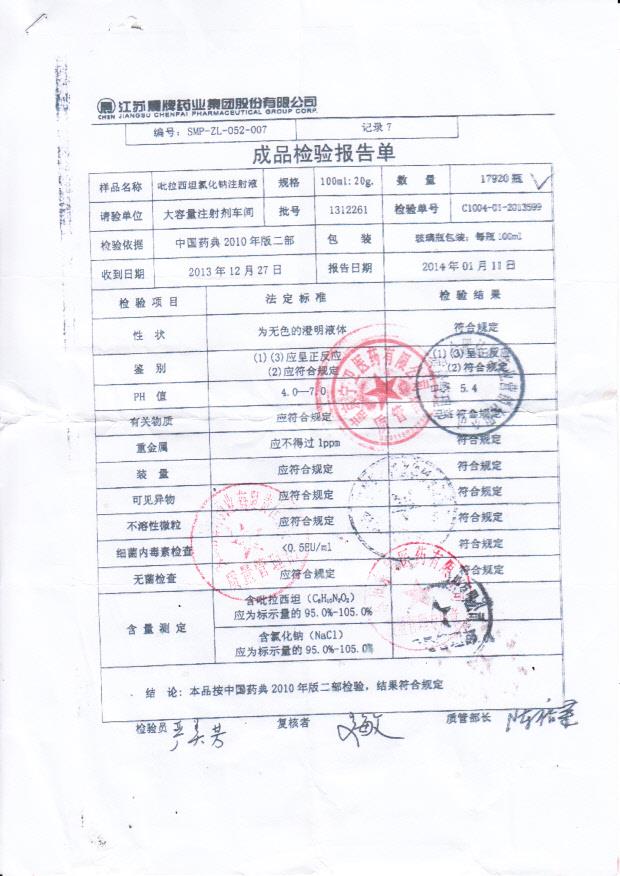 江苏晨牌药业集团股份有限公司
CHEN JIANGSU CHENPAI PHARMACEUTICAL GROUP CORP.
编号: SMP-ZL-052-007 记录 7
成品检验报告单
样品名称 吡拉西坦氯化钠注射液 规格 100ml:20g. 数 量 17920 瓶
请验单位 大容量注射剂车间 批号 1312261 检验单号
检验依据 中国药典 2010 年版二部 包 装 玻璃瓶包装: 每瓶 100ml
收到日期 2013 年 12 月 27 日 报告日期 2014 年 01 月 11 日
检 验 项 目 法 定 标 准 检 验 结 果
性 状 为无色的澄明液体 符合规定
鉴 别 (1)(3)应呈正反应 (1)(3)呈正反应
(2)应符合规定 (2)符合规定
PH 值 4.0—7.0 5.4
有关物质 应符合规定 符合规定
重金属 应不得过 1ppm 符合规定
装 量 应符合规定 符合规定
可见异物 应符合规定 符合规定
不溶性微粒 应符合规定 符合规定
细菌内毒素检查 <0.5EU/ml 符合规定
无菌检查 应符合规定 符合规定
含 量 测 定 含吡拉西坦 (C₆H₁₀N₂O₂)
应为标示量的 95.0%-105.0%
含氯化钠 (NaCl)
应为标示量的 95.0%-105.0%
结 论: 本品按中国药典 2010 年版二部检验, 结果符合规定
检验员 复核者 质管部长